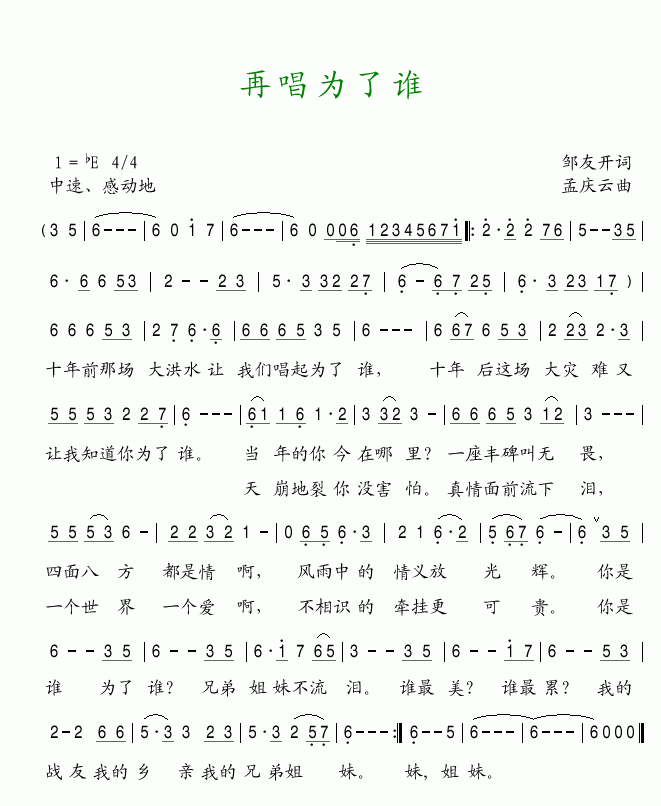 再唱为了谁
1 = ♭E 4/4 邹友开词
中速、感动地 孟庆云曲
( 3 5 | 6 - - - | 6 0 i 7 | 6 - - - | 6 0 006 12345671 ‖: 2· 2 2 76 | 5 - - 35 |
6· 6 6 53 | 2 - - 2 3 | 5· 3 32 27 | 6 - 6 7 25 | 6· 3 23 17 ) |
6 6 6 5 3 | 2 7 6·6 | 6 6 6 5 3 5 | 6 - - - | 6 67 6 5 3 | 2 23 2·3 |
十年前那场 大洪水让 我们唱起为了 谁, 十年 后这场 大灾 难又
5 5 5 3 2 2 7 | 6 - - - | 61 1 6 1·2 | 3 32 3 - | 6 6 6 5 3 12 | 3 - - - |
让我知道你为了谁。 当 年的你今在哪 里? 一座丰碑叫无 畏,
天 崩地裂你没害 怕。真情面前流下 泪,
5 5 5 3 6 - | 2 2 3 2 1 - | 0 6 5 6·3 | 2 1 6·2 | 5 67 6 - | 6 ∨ 3 5 |
四面八 方 都是情 啊, 风雨中的 情义放 光 辉。 你是
一个世 界 一个爱 啊, 不相识的 牵挂更 可 贵。 你是
6 - - 3 5 | 6 - - 3 5 | 6·i 7 65 | 3 - - 3 5 | 6 - - i 7 | 6 - - 5 3 |
谁 为了 谁? 兄弟 姐妹不流 泪。 谁最 美? 谁最 累? 我的
2 - 2 6 6 | 5·3 3 2 3 | 5·3 2 57 | 6 - - - :‖ 6 - - 5 | 6 - - - | 6 - - - | 6000 ‖
战友我的乡 亲我的兄弟姐 妹。 妹, 姐妹。